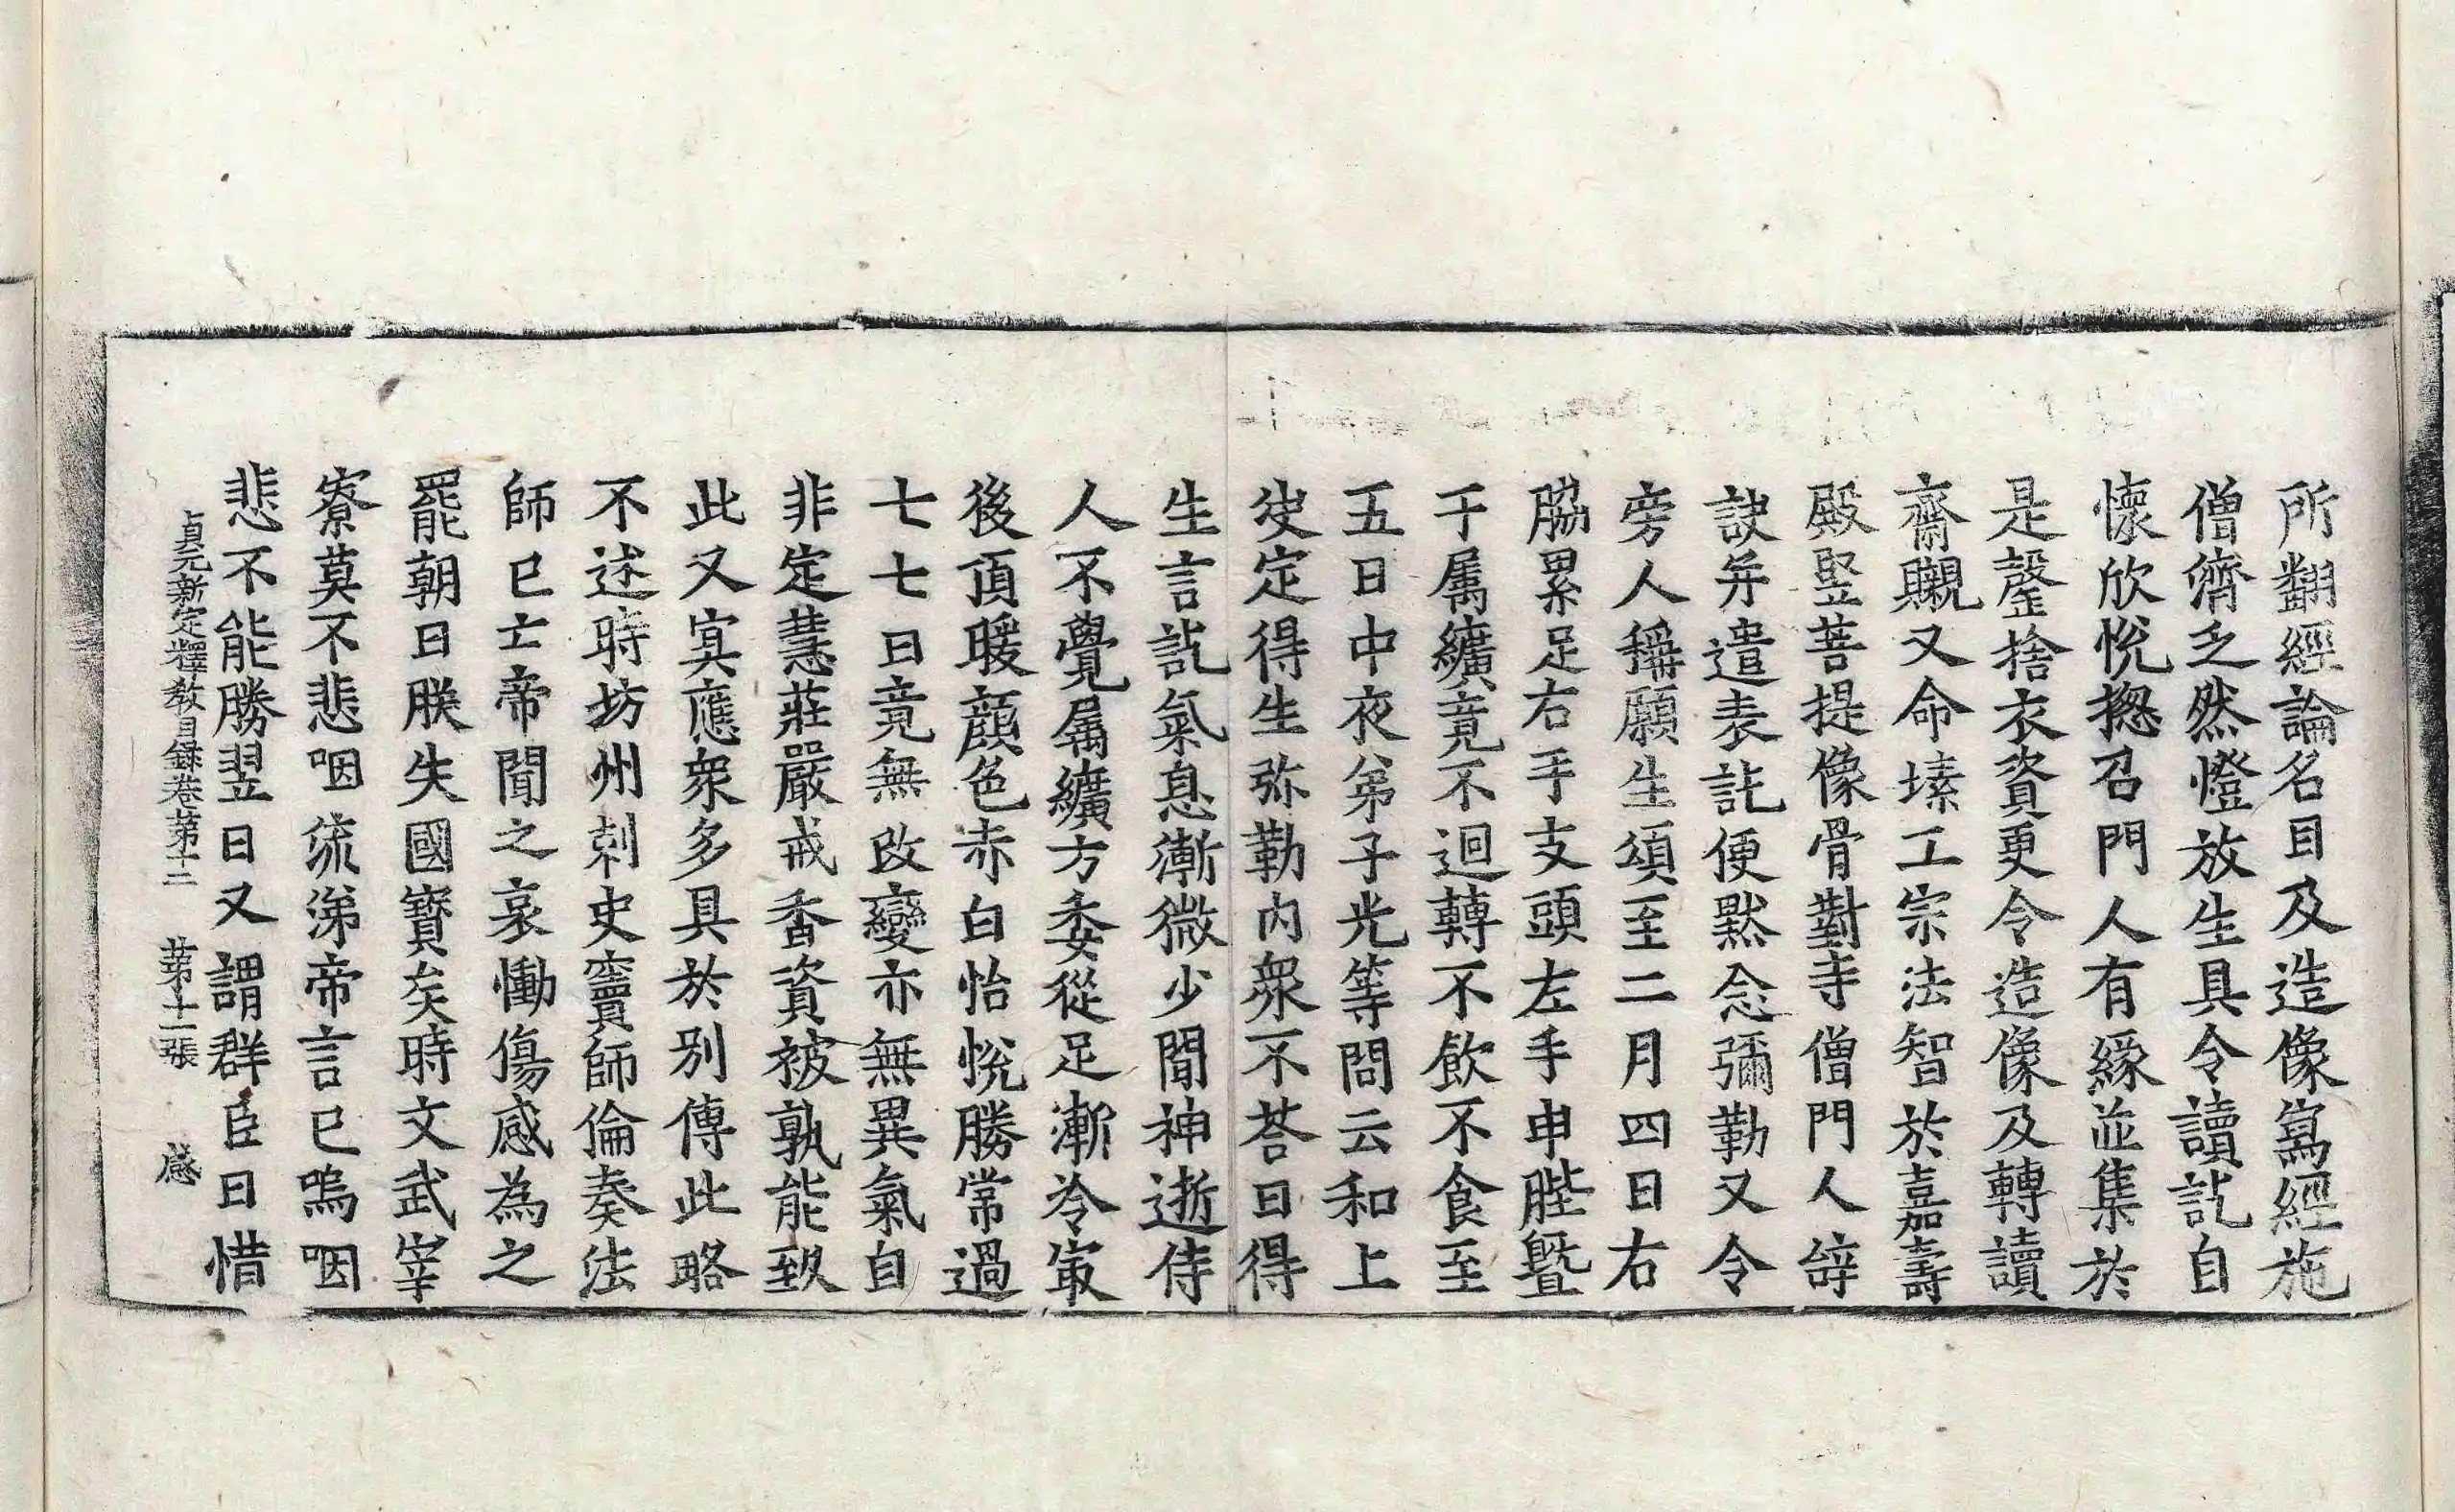 所翻經論名目及造像寫經施
僧濟乏然燈放生具令讀訖自
懷欣悅揔召門人有緣並集於
是罄捨衣資更令造像及轉讀
齋嚫又命塐工宗法智於嘉壽
殿竪菩提像骨對寺僧門人辝
訣弁遣表訖便黙念彌勒又令
旁人稱願生頌至二月四日右
脇累足右手支頭左手申䏶曁
于属纊竟不迴轉不飲不食至
五日中夜弟子光等問云和上
决定得生弥勒内衆不荅曰得
生言訖氣息漸微少間神逝侍
人不覺属纊方委從足漸冷㝡
後頂暖顔色赤白怡悅勝常過
七七日竟無改變亦無異氣自
非定慧莊嚴戒香資被孰能致
此又寘應衆多具於別傳此略
不述時坊州刺史竇師倫奏法
師已亡帝聞之哀慟傷感為之
罷朝曰朕失國寶矣時文武宰
寮莫不悲咽流涕帝言已嗚咽
悲不能勝翌日又謂群臣曰惜
貞元新定釋教目録卷苐十二 苐十一張 感